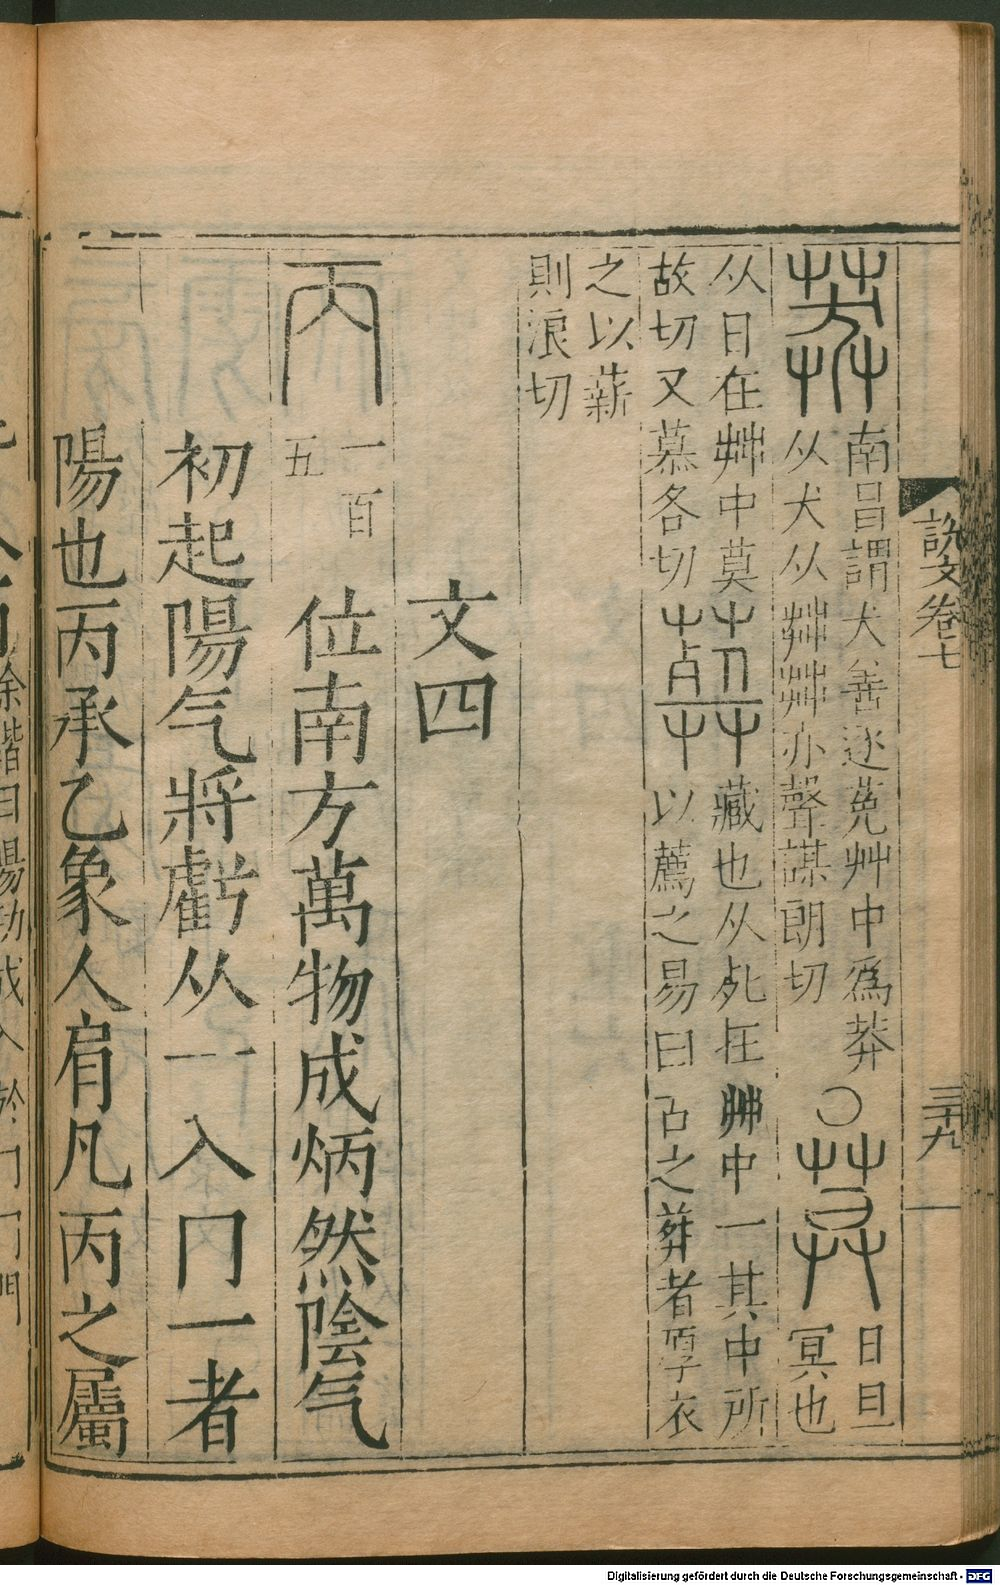 說文卷七
三十九
莽南昌謂犬善逐菟艸中爲莽
从犬从茻茻亦聲謀朗切
〇莫日且冥也
从日在茻中莫故切又慕各切
葬藏也从死在茻中一其中所
以薦之易曰古之葬者厚衣
之以薪
則浪切
文四
丙一百五
位南方萬物成炳然陰气
初起陽气將虧从一入冂一者
陽也丙承乙象人肩凡丙之屬
徐鍇曰陽功成入於冂冂門
Digitalisierung gefördert durch die Deutsche Forschungsgemeinschaft - DFG